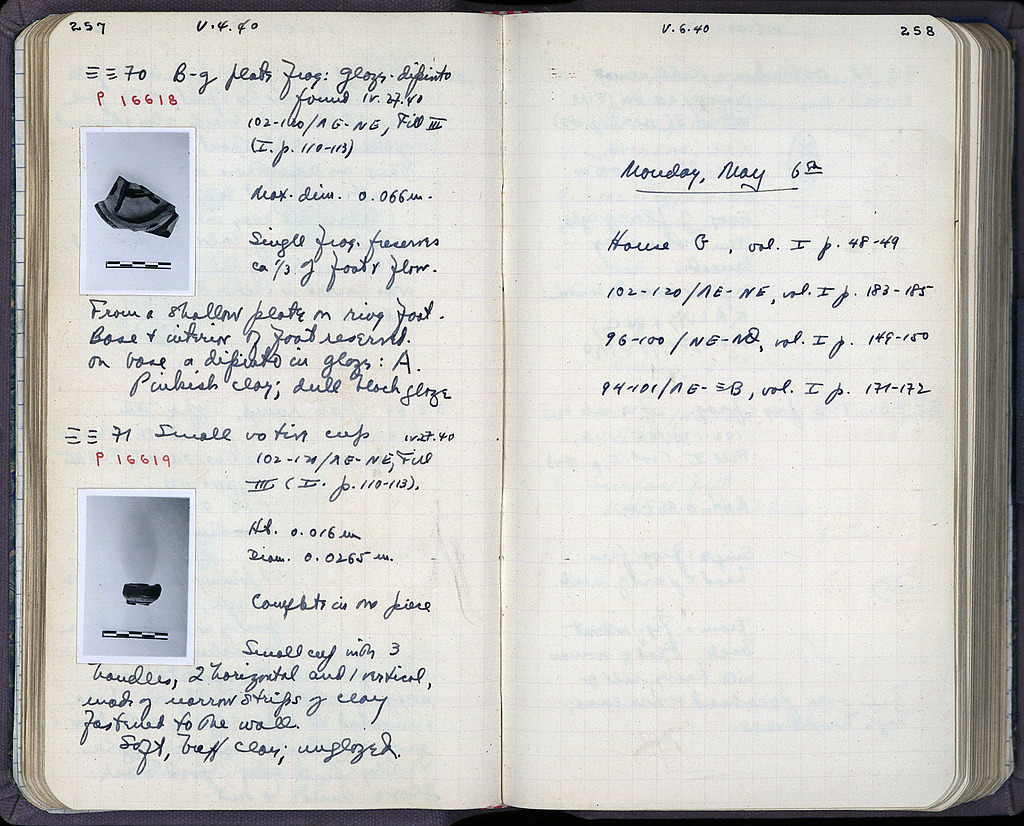 257 V.4.40
ΞΞ 70 B-g plate frag: glaze dipinto
P 16618 found IV.27.40
102-120/ΛΕ-ΝΕ, Fill III
(I. p. 110-113)
Max. dim. 0.066 m.
Single frag. preserves
ca 1/3 of foot + floor.
From a shallow plate on ring foot.
Base + interior of foot reserved.
on base a dipinto in glaze: A.
Pinkish clay; dull black glaze
ΞΞ 71 Small votive cup IV.27.40
P 16619 102-120/ΛΕ-ΝΕ, Fill
III (I. p. 110-113).
Ht. 0.016 m
Diam. 0.0265 m.
Complete in one piece
Small cup with 3
handles, 2 horizontal and 1 vertical,
made of narrow strips of clay
fastened to the wall.
Soft, buff clay; unglazed.
V.6.40 258
Monday, May 6th
House G, vol. I p. 48-49
102-120/ΛΕ-ΝΕ, vol. I p. 183-185
96-100/ΝΕ-, vol. I p. 149-150
94-101/ΛΕ-ΞΒ, vol. I p. 171-172